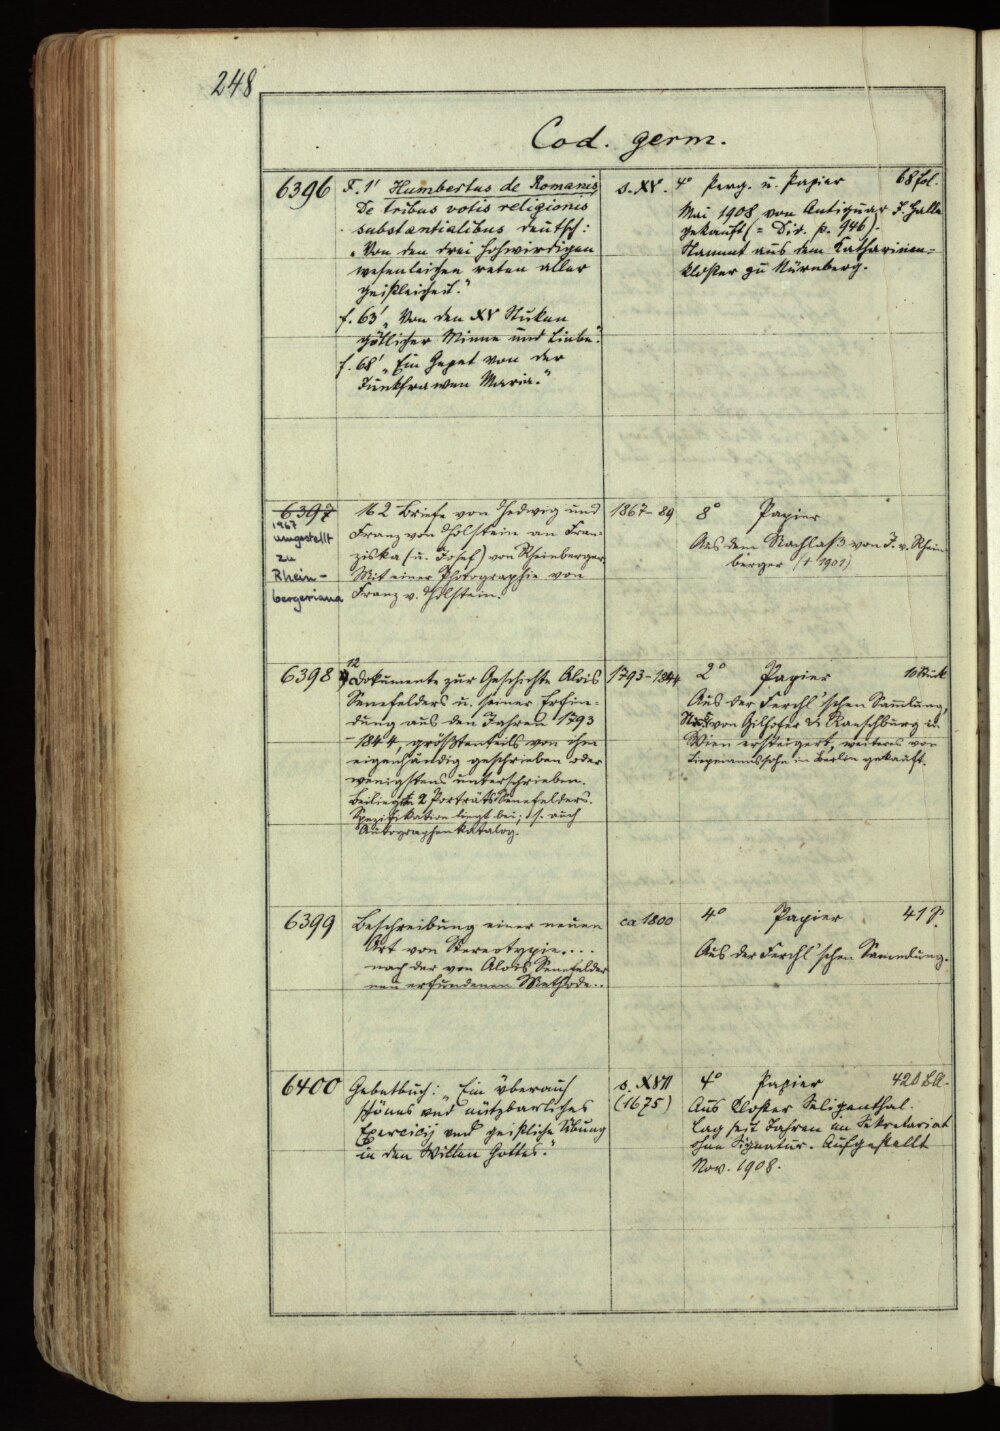 248
Cod. germ.
6396
F. 1' Humbertus de Romanis
De tribus votis religionis
substantialibus deutsch:
"Von den drei hohwirdigen
wesenleichen reten aller
geistleicheit."
f. 63' "Von den XV Stuken
götlicher Minne und Liebe."
f. 68' "Ein Gepet von der
Junkfrawen Maria."
s. XV.
4° Perg. u. Papier 68 fol.
Mai 1908 von Antiquar J. Halle
gekauft (= Div. p. 946).
Stammt aus dem Katharinen-
kloster zu Nürnberg.
6397
1967
umgestellt
zu
Rhein-
bergeriana
162 Briefe von Hedwig und
Franz von Holstein an Fran-
ziska (u. Josef) von Rheinberger.
Mit einer Photographie von
Franz v. Holstein.
1867-89
8° Papier
Aus dem Nachlaß von J. v. Rhein-
berger († 1901)
6398
12
Dokumente zur Geschichte Alois
Senefelders u. seiner Erfin-
dung aus den Jahren 1793
- 1844, größtenteils von ihm
eigenhändig geschrieben oder
wenigstens unterschrieben.
Beiliegen 2 Porträts Senefelders.
Spezifikation liegt bei; s. auch
Autographenkatalog.
1793-1844
2° Papier Stück
Aus der Ferchl'schen Sammlung,
von Gilhofer & Ranschburg in
Wien ersteigert, weiteres von
Liepmannssohn in Berlin gekauft.
6399
Beschreibung einer neuen
Art von Stereotypie....
nach der von Alois Senefelder
neu erfundenen Methode..
ca 1800
4° Papier 41 S.
Aus der Ferchl'schen Sammlung.
6400
Gebetbuch: "Ein überauß
schönes und nützbarliches
Exercicij und geistliche Übung
in den Willen Gottes."
s. XVII
(1675)
4° Papier 420 Bl.
Aus Kloster Seligenthal.
Lag seit Jahren im Sekretariat
ohne Signatur. Aufgestellt
Nov. 1908.